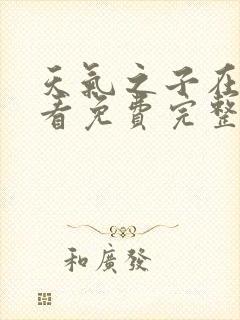 天氣之子在
看免費完整
和廣發